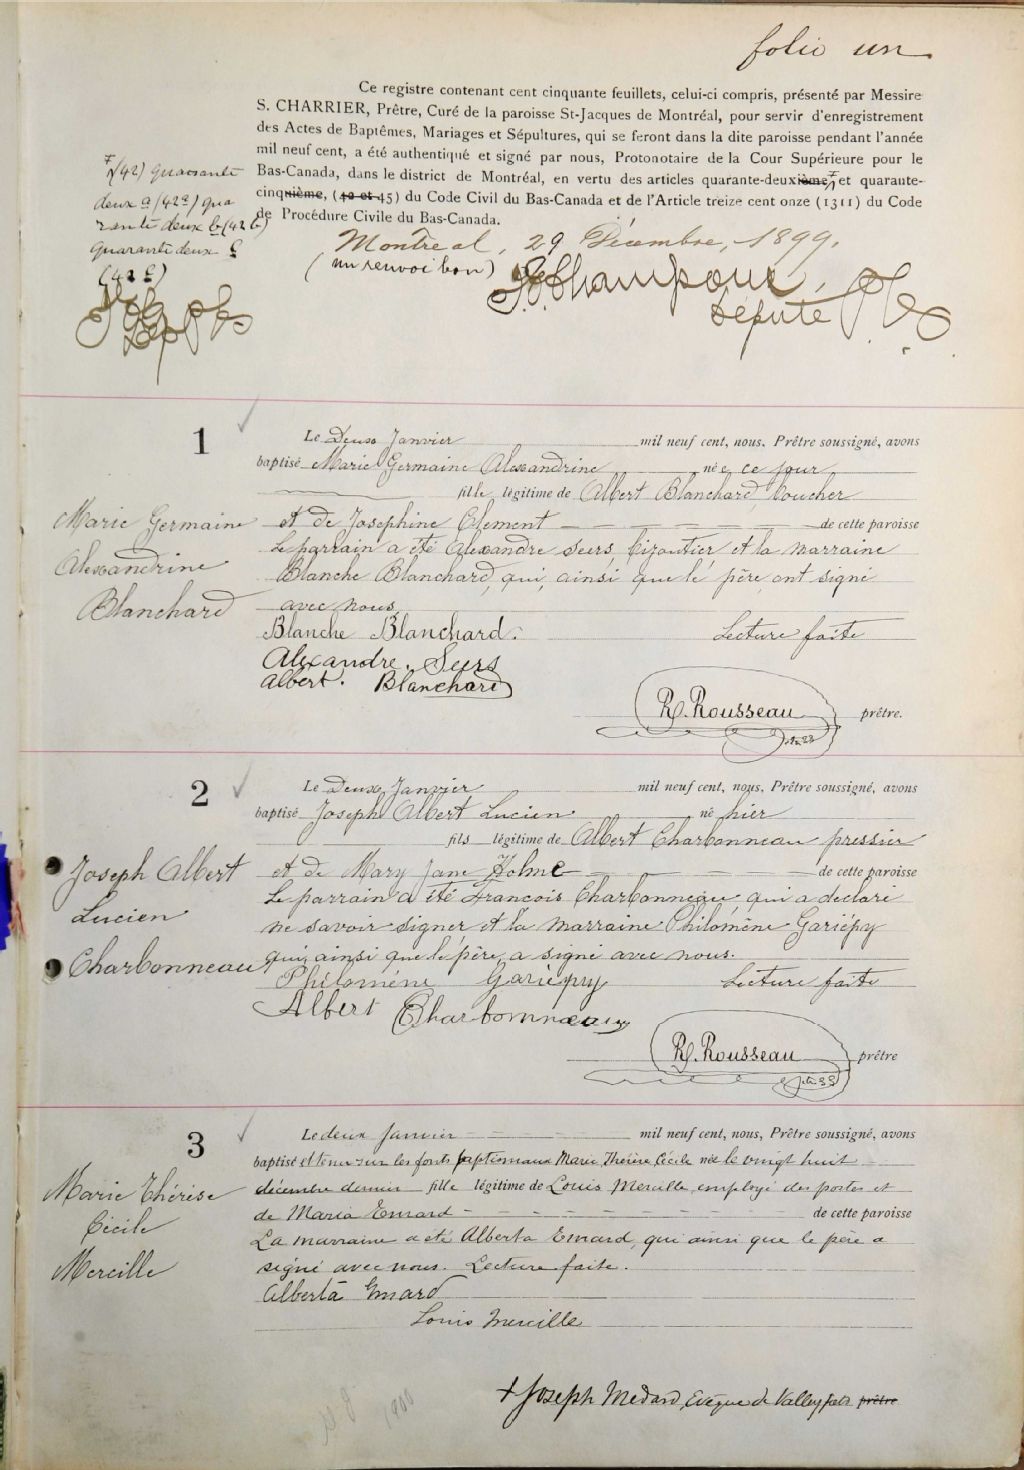 folio un
Ce registre contenant cent cinquante feuillets, celui-ci compris, présenté par Messire
S. CHARRIER, Prêtre, Curé de la paroisse St-Jacques de Montréal, pour servir d'enregistrement
des Actes de Baptêmes, Mariages et Sépultures, qui se feront dans la dite paroisse pendant l'année
mil neuf cent, a été authentiqué et signé par nous, Protonotaire de la Cour Supérieure pour le
Bas-Canada, dans le district de Montréal, en vertu des articles quarante-deuxième, et quarante-
cinquième, (42 et 45) du Code Civil du Bas-Canada et de l'Article treize cent onze (1311) du Code
de Procédure Civile du Bas-Canada.
(42) quarante
deux a (42a) qua
rante deux b (42 b)
quarante deux c
(42 c)
Montréal, 29 Décembre, 1899.
(un renvoi bon)
Champoux,
député
1
Marie Germaine
Alexandrine
Blanchard
Le Deux Janvier mil neuf cent, nous, Prêtre soussigné, avons
baptisé Marie Germaine Alexandrine née ce jour
fille légitime de Albert Blanchard, boucher
et de Josephine Clement de cette paroisse
Le parrain a été Alexandre Seers, bijoutier et la marraine
Blanche Blanchard, qui, ainsi que le père ont signé
avec nous.
Blanche Blanchard. Lecture faite
Alexandre. Seers
Albert. Blanchard
R. Rousseau prêtre.
2
Joseph Albert
Lucien
Charbonneau
Le Deux Janvier mil neuf cent, nous, Prêtre soussigné, avons
baptisé Joseph Albert Lucien né hier
fils légitime de Albert Charbonneau pressier
et de Mary Jane Holme de cette paroisse
Le parrain a été Francois Charbonneau qui a declaré
ne savoir signer et la marraine Philomène Gariépy
qui, ainsi que le père, a signé avec nous.
Philoméne Gariépy Lecture faite
Albert Charbonneau
R. Rousseau prêtre
3
Marie Thérèse
Cécile
Mercille
Le deux Janvier mil neuf cent, nous, Prêtre soussigné, avons
baptisé et tenu sur les fonts baptismaux Marie Thérèse Cécile née le vingt huit
décembre dernier fille légitime de Louis Mercille, employé des postes et
de Maria Emard de cette paroisse
La marraine a été Alberta Emard, qui ainsi que le père a
signé avec nous. Lecture faite.
Alberta Emard
Louis Mercille
+ Joseph Medard, Evêque de Valleyfield prêtre
1900